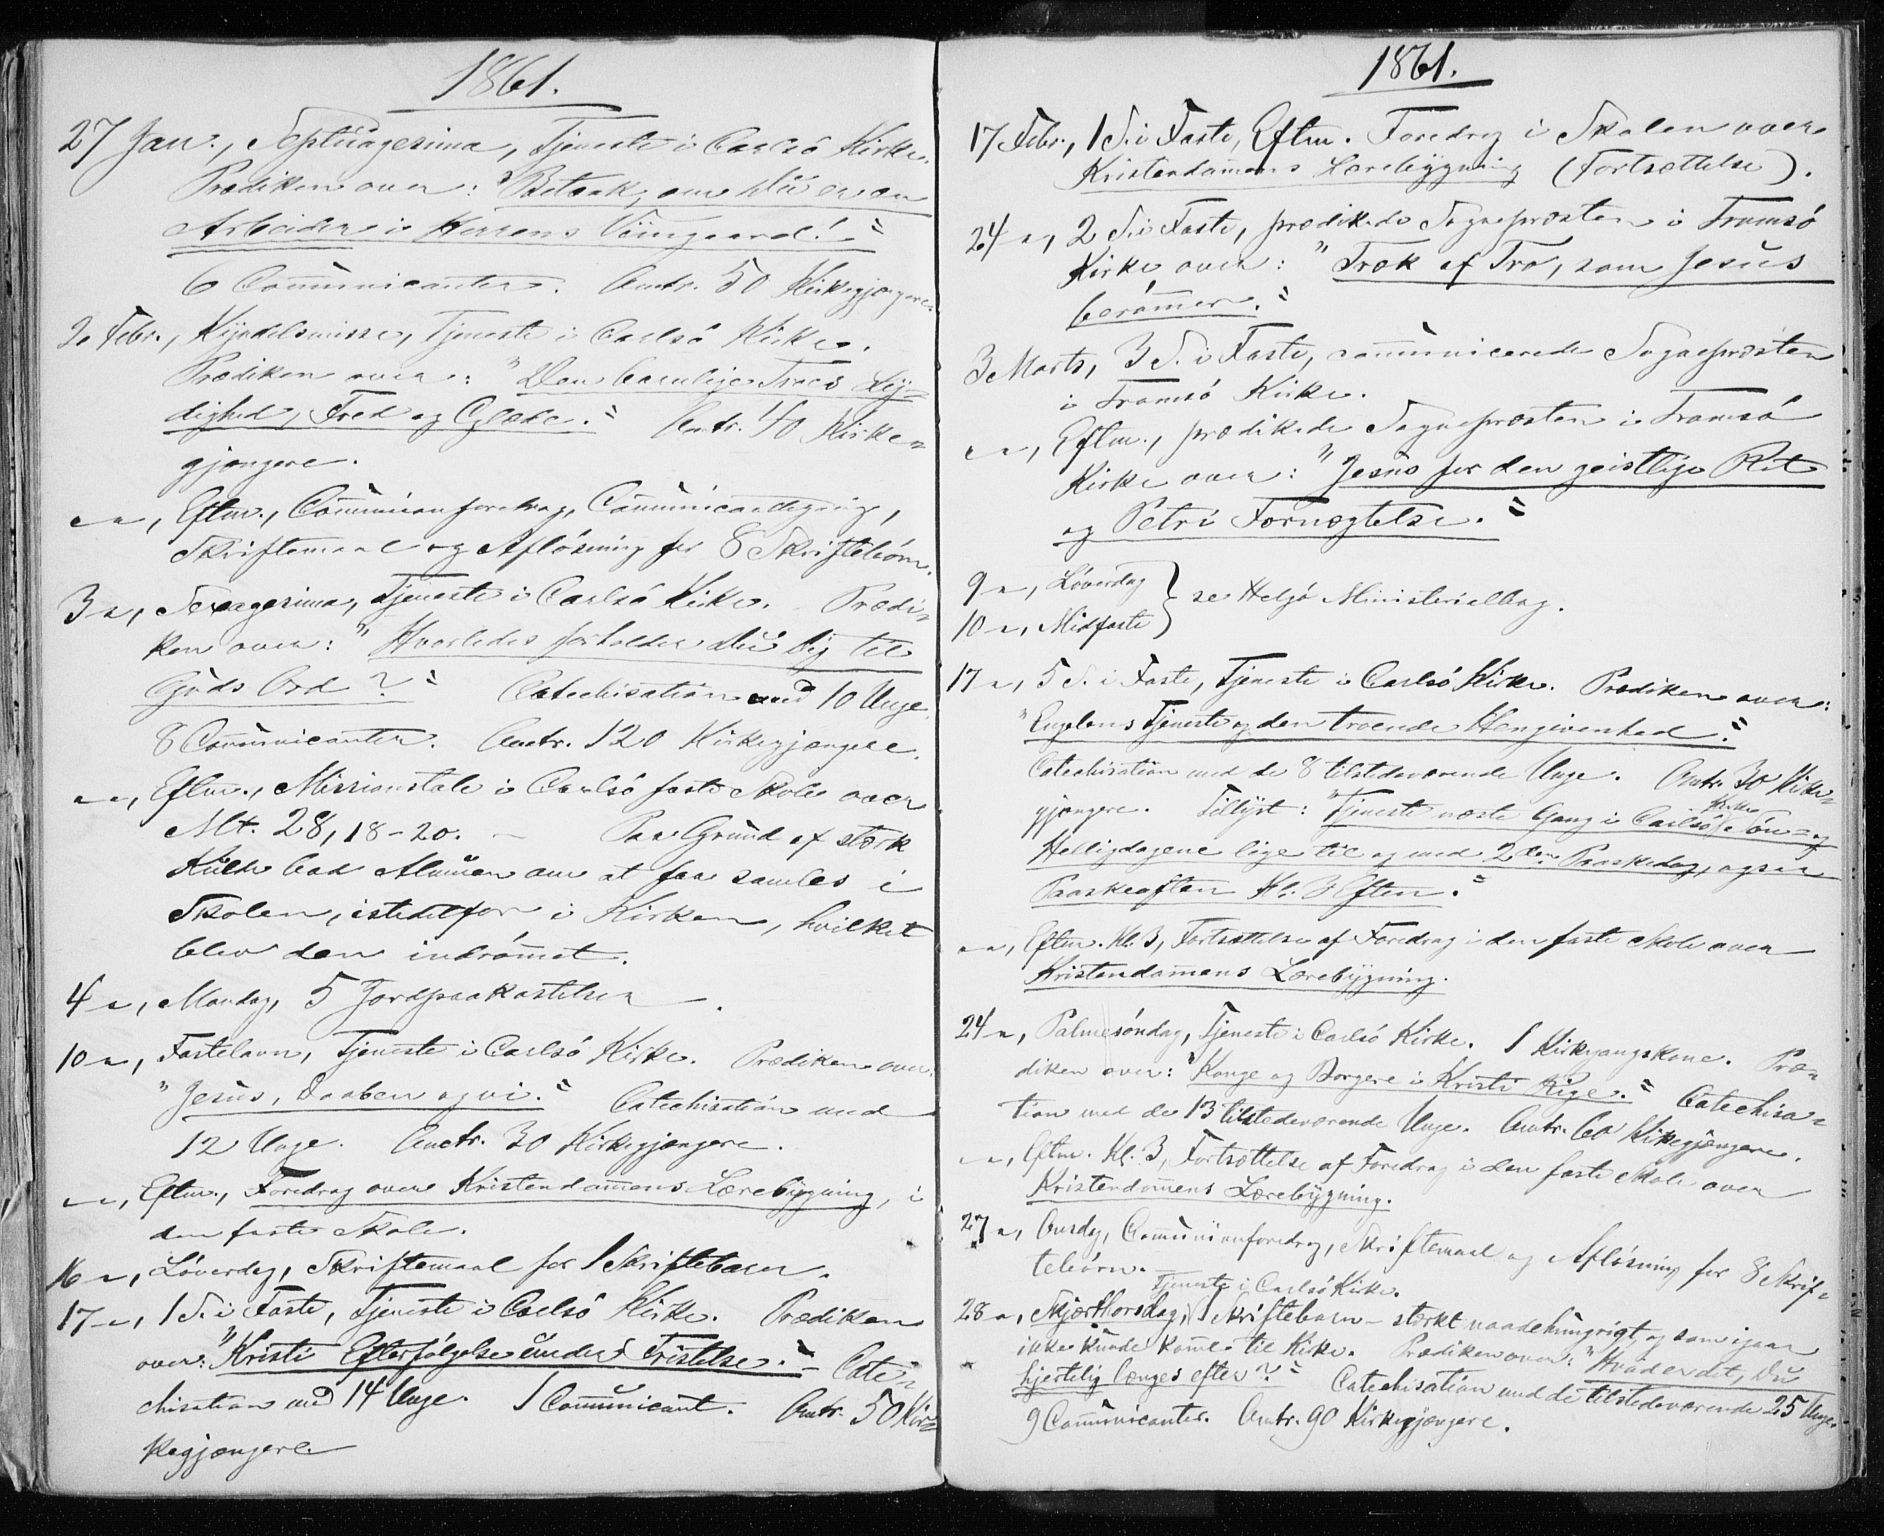 1861.
27 Jan., Septuagesima, Tjeneste i Carlsö Kirke.
Prædiken over: "Betænk, om Du er en
Arbeider i Herrens Viingaard!"
6 Communicanter. Omtr. 50 Kirkegjængere.
2. Febr., Kyndelsmisse, Tjeneste i Carlsö Kirke.
Prædiken over: "Den barnlige Troes Ly-
dighed, Fred og Glæde." Omtr. 40 Kirke-
gjængere.
" ", Eftm., Communionforedrag, Communicanteskrivning,
Skriftemaal og Aflösning for 8 Skriftebörn.
3 ", Sexagesima, Tjeneste i Carlsö Kirke. Prædi-
ken over: "Hvorledes forholder Du Dig til
Guds Ord?" Catechisation med 10 Unge.
8 Communicanter. Omtr. 120 Kirkegjængere.
" ", Eftm., Missionstale i Carlsö faste Skole over
Mt. 28, 18-20. – Paa Grund af stærk
Kulde bad Almuen om at faa samles i
Skolen, istedetfor i Kirken, hvilket
blev den indrömmet.
4 ", Mandag, 5 Jordpaakastelser.
10 ", Fastelavn, Tjeneste i Carlsö Kirke. Prædiken over:
"Jesus, Daaben og vi." Catechisation med
12 Unge. Omtr. 30 Kirkegjængere.
" ", Eftm., Foredrag over Kristendommens Lærebygning, i
den faste Skole.
16 ", Löverdag, Skriftemaal for 1 Skriftebarn.
17 ", 1 S. i Faste, Tjeneste i Carlsö Kirke. Prædiken
over: "Kristi Efterfölgelse under Fristelse." – Cate-
chisation med 14 Unge. 1 Communicant. Omtr. 50 Kir-
kegjængere.
1861.
17 Febr., 1 S. i Faste, Eftm. Foredrag i Skolen over
Kristendommens Lærebygning (Fortsættelse).
24 ", 2 S. i Faste, prædikede Sognepræsten i Tromsö
Kirke over: "Træk af Tro, som Jesus
berömmer."
3 Marts, 3 S. i Faste, communicerede Sognepræsten
i Tromsö Kirke.
" ", Eftm., prædikede Sognepræsten i Tromsö
Kirke over: "Jesus for den geistlige Ret
og Petri Fornægtelse."
9 ", Löverdag
10 ", Midfaste } se Helgö Ministerialbog.
17 ", 5 S. i Faste, Tjeneste i Carlsö Kirke. Prædiken over:
"Engelens Tjeneste og den troende Hengivenhed."
Catechisation med de 8 tilstedeværende Unge. Omtr. 30 Kirke-
gjængere. Tillyst: "Tjeneste næste Gang i Carlsö Kirke, Sön- og
Helligdagene lige til og med 2den Paaskedag, ogsaa
Paaskeaften Kl. 3 Eftm."
" ", Eftm. Kl. 3, Fortsættelse af Foredrag i den faste Skole over
Kristendommens Lærebygning.
24 ", Palmesöndag, Tjeneste i Carlsö Kirke. 1 Kirkgangskone. Præ-
diken over: "Konge og Borgere i Kristi Rige." Catechisa-
tion med de 13 tilstedeværende Unge. Omtr. 60 Kirkegjængere.
" ", Eftm. Kl. 3, Fortsættelse af Foredrag i den faste Skole over
Kristendommens Lærebygning.
27 ", Onsdag, Communionforedrag, Skriftemaal og Aflösning for 8 Skrif-
tebörn.
Tjeneste i Carlsö Kirke.
28 ", Skjærthorsdag, 1 Skriftebarn – stærkt naadehungrigt, og som igaar
ikke kunde komme til Kirke. Prædiken over: "Hvad er det, Du
hjertelig længes efter?" Catechisation med de tilstedeværende 25 Unge.
9 Communicanter. Omtr. 90 Kirkegjængere.